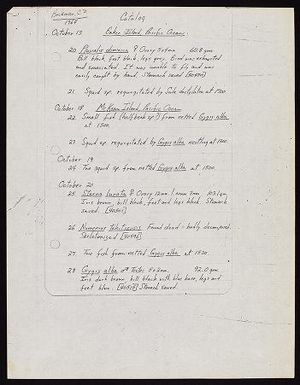 1968
Catalog
October 13 Baker Island, Pacific Ocean
20. Pluvialis dominica ♀ Ovary 5x9mm 60.8 gm.
Bill black, feet black, legs grey. Bird was exhausted
and emaciated. It was unable to fly and was
easily caught by hand. Stomach saved
21. Squid sp. regurgitated by Sula at 1500.
October 18 McKean Island, Pacific Ocean
22. Small fish (halfbeak sp?) from netted Gygis alba
at 1500.
23. Squid sp. regurgitated by Gygis alba nestling at 1700
October 19
24. Two squid sp. from netted Gygis alba at 1500.
October 20
25. Sterna lunata ♀ Ovary 12mm 1 ovum 2mm
Iris brown, bill black, feet and legs black. Stomach
saved.
26. Numenius tahitiensis Found dead - badly decomposed.
Skeletonized
27. Two fish from netted Gygis alba at 1500.
28. Gygis alba ♂ Testes 5x2mm 92.0 gm.
Iris dark brown, bill black with blue base, legs and
feet blue. Stomach saved.